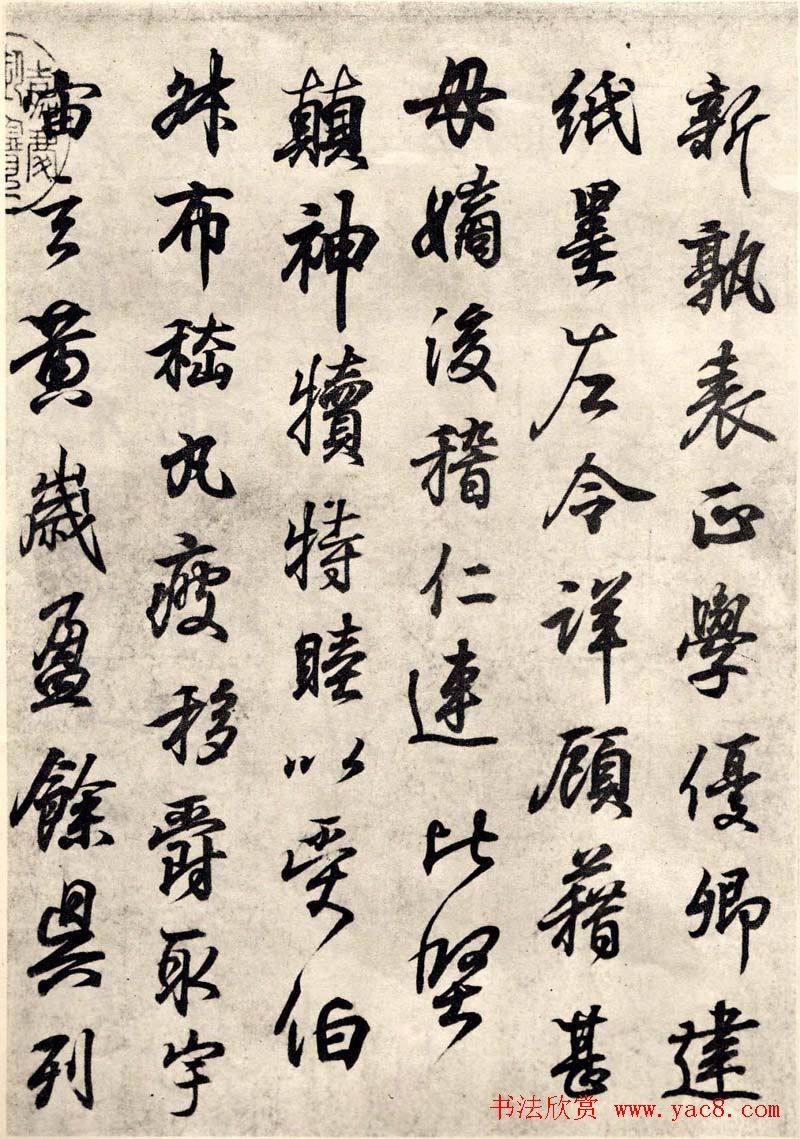 新孰表正學優卿建
紙墨左令詳顧藉甚
毋嫡後稽仁連比堅
顛神犢特睦以伯
布嵇丸疲移爵取宇
宙黃歲盈餘列
书法欣赏 www.yac8.com